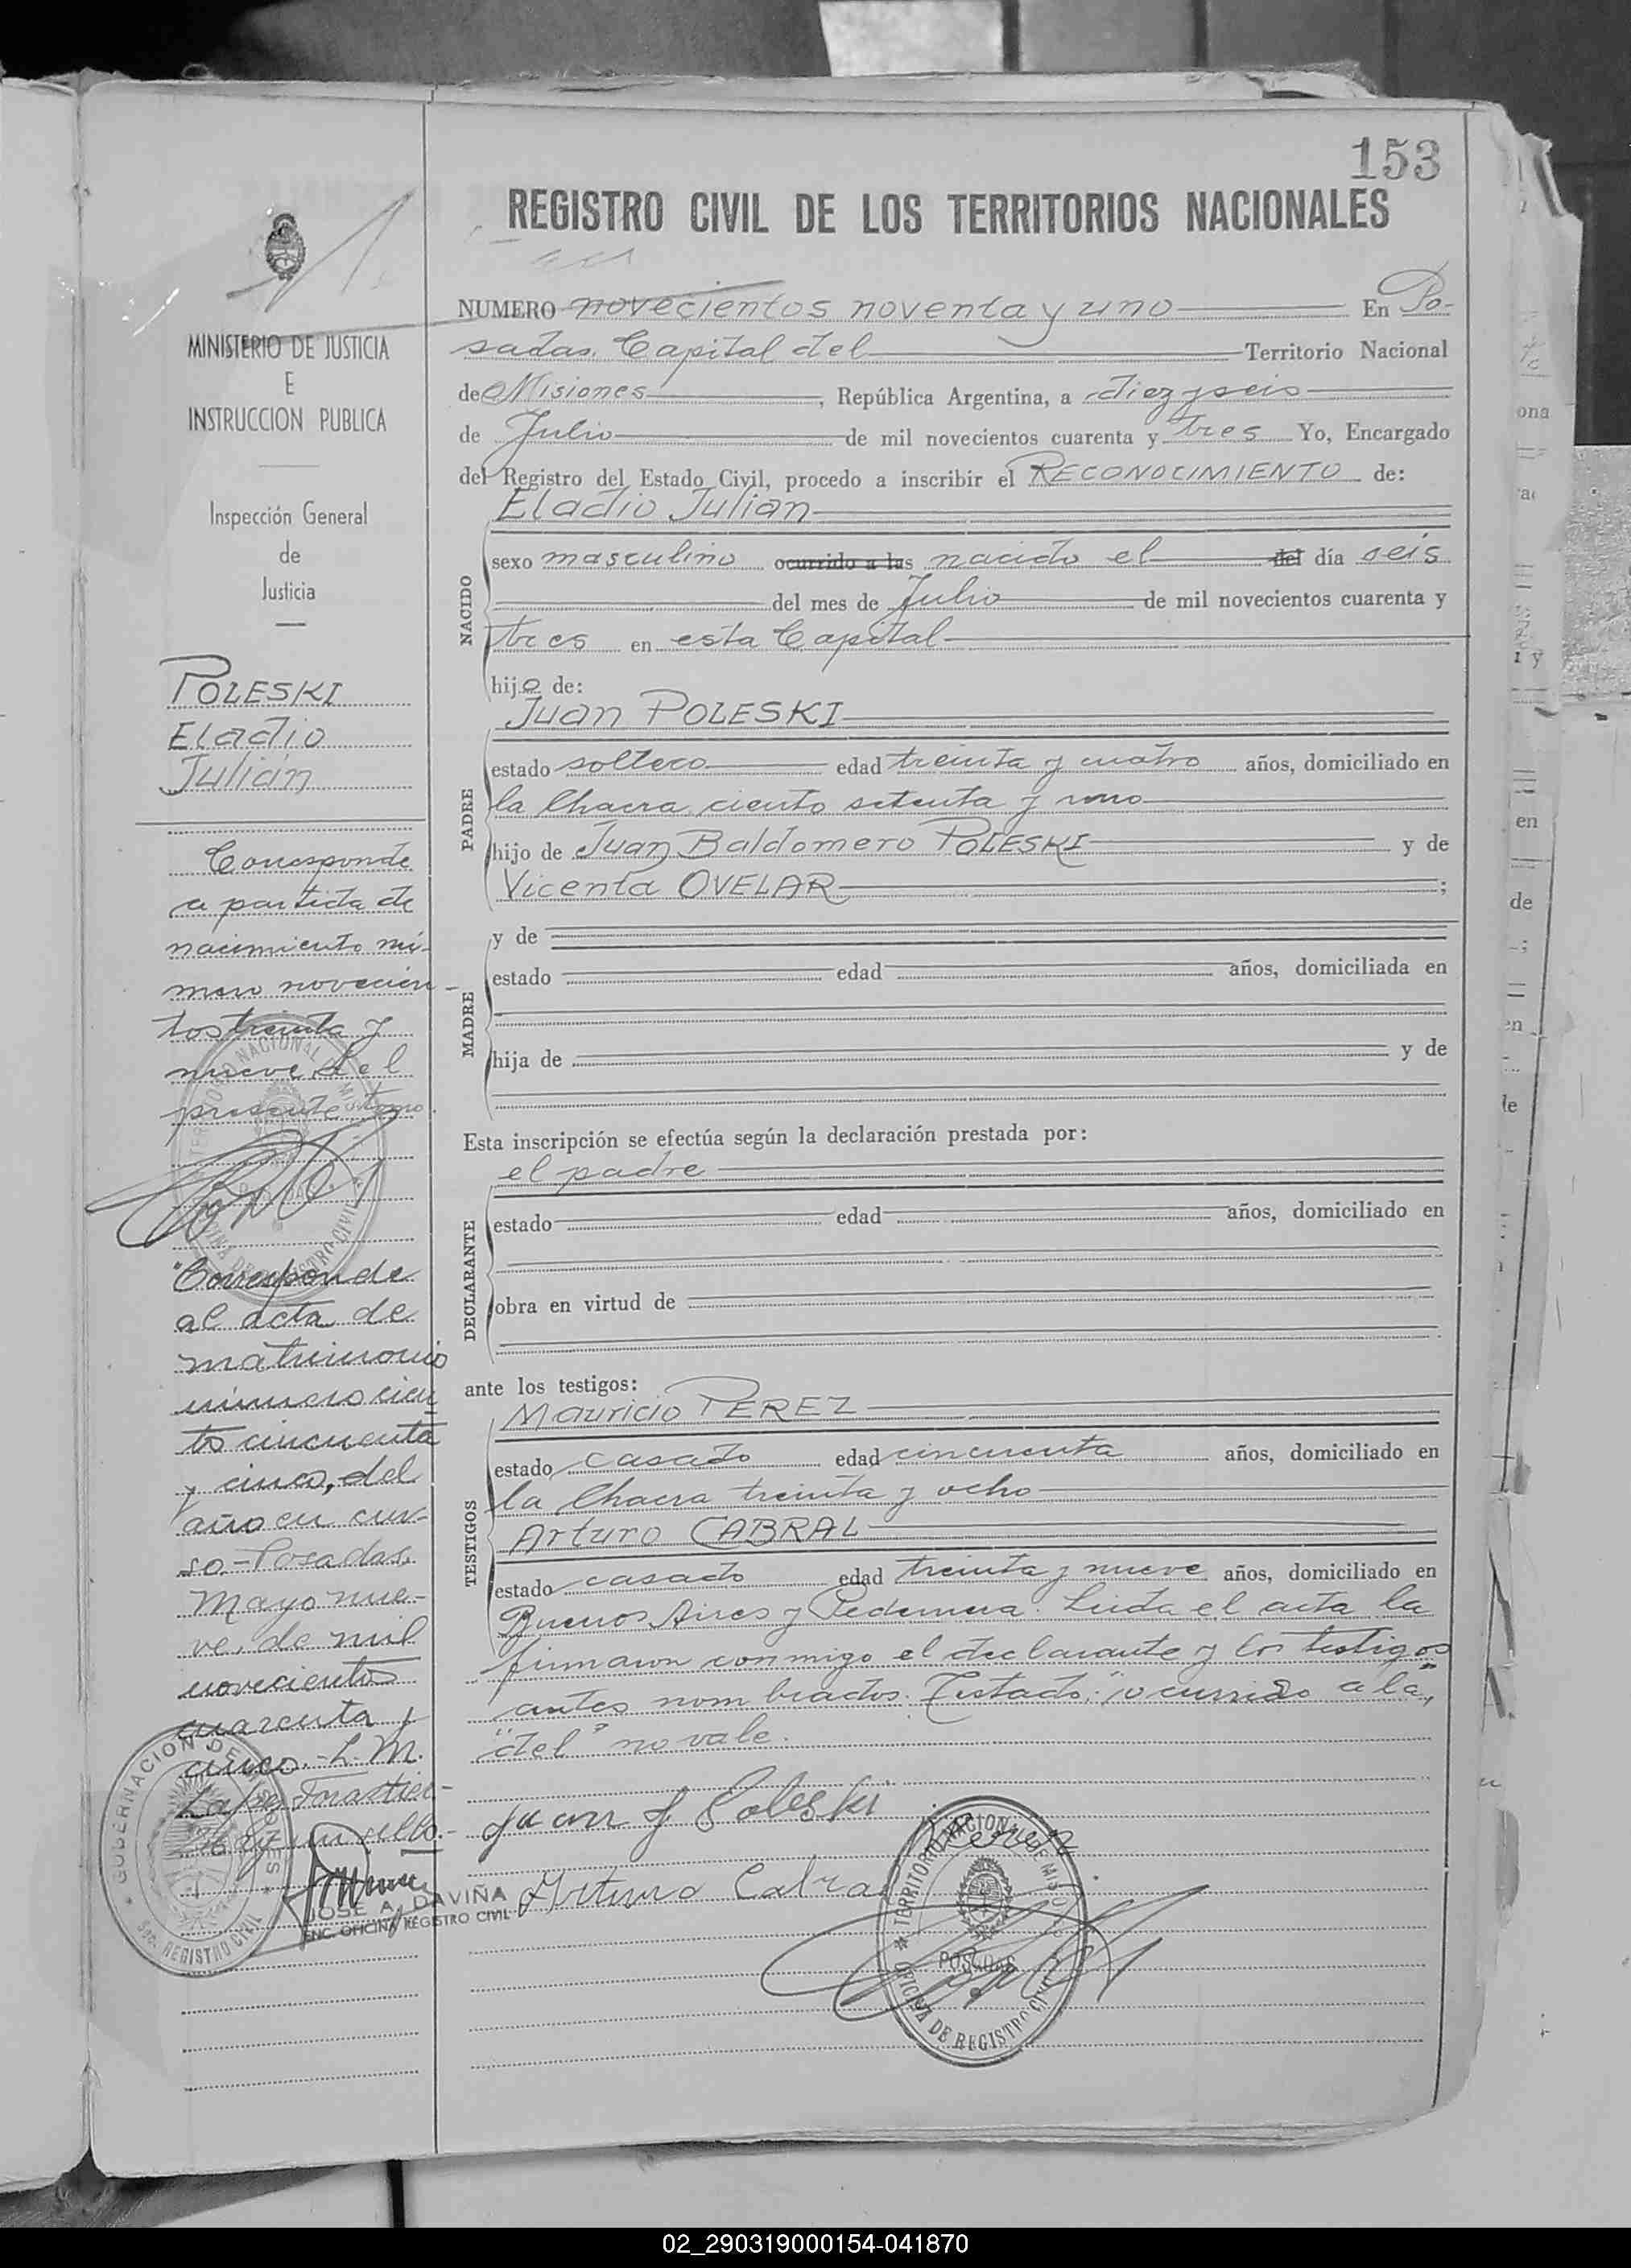 153
REGISTRO CIVIL DE LOS TERRITORIOS NACIONALES
NUMERO novecientos noventa y uno En Po-
sadas, Capital del Territorio Nacional
de Misiones, República Argentina, a diez y seis
de Julio de mil novecientos cuarenta y tres Yo, Encargado
del Registro del Estado Civil, procedo a inscribir el RECONOCIMIENTO de:
Eladio Julian
NACIDO
sexo masculino ocurrido a las nacido el del día seis
del mes de Julio de mil novecientos cuarenta y
tres en esta Capital
hijo de:
Juan POLESKI
PADRE
estado soltero edad treinta y cuatro años, domiciliado en
la Chacra ciento setenta y uno
hijo de Juan Baldomero POLESKI y de
Vicenta OVELAR;
MADRE
y de
estado edad años, domiciliada en
hija de y de
Esta inscripción se efectúa según la declaración prestada por:
el padre
DECLARANTE
estado edad años, domiciliado en
obra en virtud de
ante los testigos:
Mauricio PEREZ
TESTIGOS
estado casado edad cincuenta años, domiciliado en
la Chacra treinta y ocho
Arturo CABRAL
estado casado edad treinta y nueve años, domiciliado en
Buenos Aires y Pedernera. Leida el acta la
firmaron conmigo el declarante y los testigos
antes nombrados. Testado: "ocurrido a la",
"del" no vale.
Juan J Poleski
Perez
Arturo Cabral
TERRITORIO NACIONAL DE MISIONES
POSADAS
OFICINA DE REGISTRO CIVIL
MINISTERIO DE JUSTICIA
E
INSTRUCCION PUBLICA
Inspección General
de
Justicia
POLESKI
Eladio
Julián
Corresponde
a partida de
nacimiento nú-
mero novecien-
tos treinta y
nueve del
presente tomo.
TERRITORIO NACIONAL DE MISIONES
OFICINA DE REGISTRO CIVIL
"Corresponde
al acta de
matrimonio
número cien
to cincuenta
y cinco, del
año en cur-
so.-Posadas,
Mayo nue-
ve, de mil
novecientos
cuarenta y
cinco.-L. M.
Hay un sello.-
GOBERNACION DE MISIONES
Sec. REGISTRO CIVIL
JOSE A. DAVIÑA
ENC. OFICINA REGISTRO CIVIL
ona
en
de
02_290319000154-041870